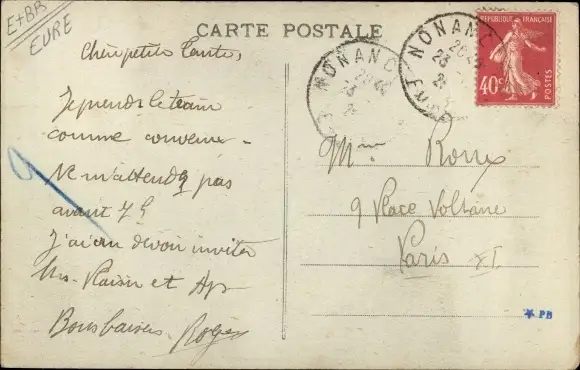 E+BB
EURE
CARTE POSTALE
Chère petite Tante,
Je prends le train
comme convenu -
Ne m'attendez pas
avant 7 h
J'ai cru devoir inviter
Mrs. Plaisir et
Bons baisers Roger
NONANC
NONANC
20
23
EURE
REPUBLIQUE FRANÇAISE
40c
POSTES
Mme Roux
9 Place Voltaire
Paris XI
PB